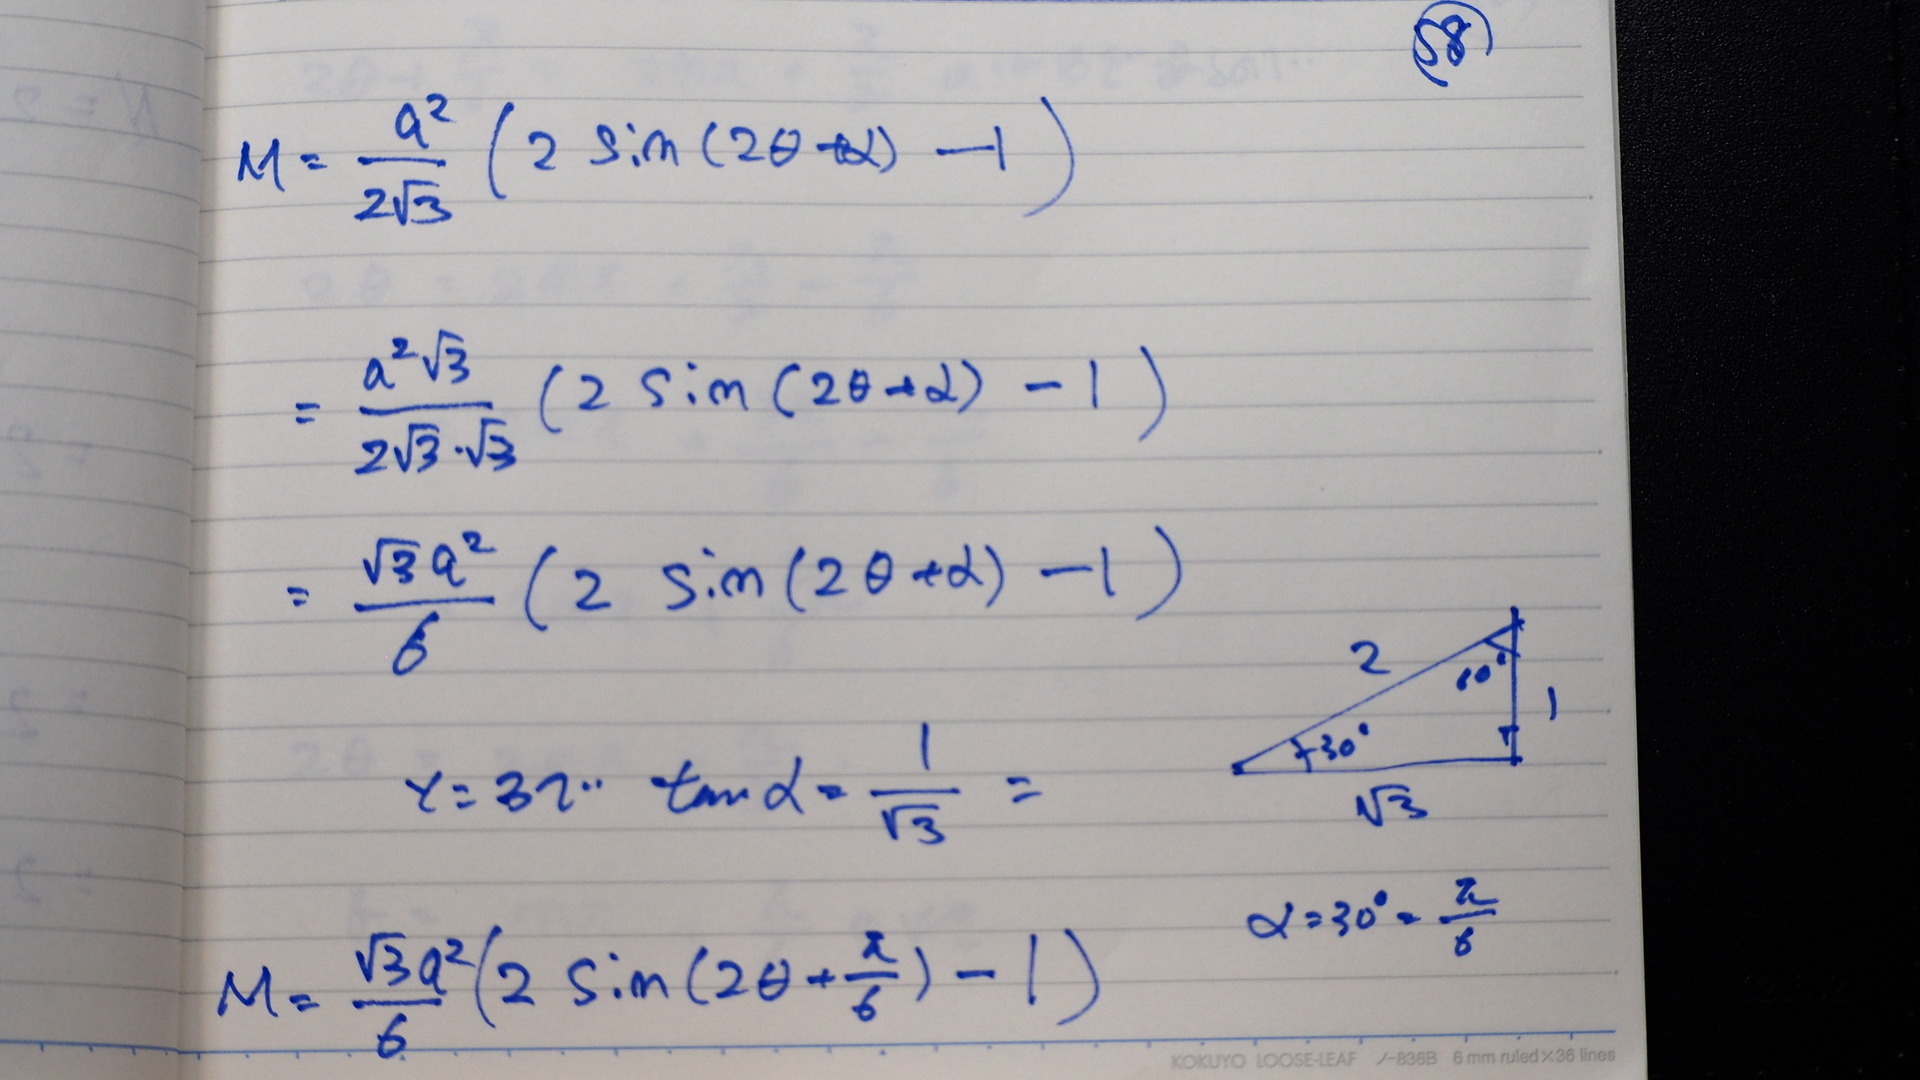 58
M = a²/2√3 (2 sin (2θ+α) − 1)
= a²√3/2√3·√3 (2 sin (2θ+α) − 1)
= √3a²/6 (2 sin (2θ+α) − 1)
2
60°
1
30°
√3
ここで tan α = 1/√3 =
α = 30° = π/6
M = √3a²/6 (2 sin (2θ + π/6) − 1)
KOKUYO LOOSE-LEAF ノ-836B 6 mm ruled×36 lines